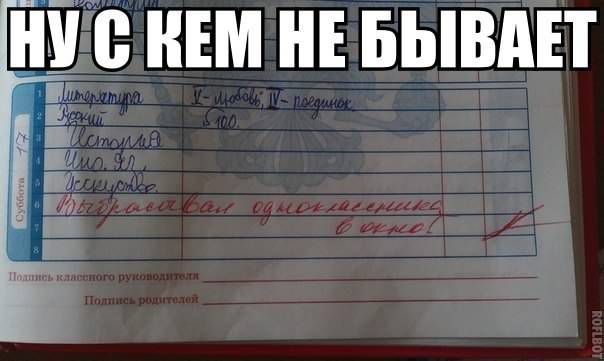 НУ С КЕМ НЕ БЫВАЕТ
1 Литература V - любовь; IV - поединок
2 Русский б 100.
3 История
4 Ино. Яз.
5 Исскуство.
6 Выбрасывал одноклассника
7 в окно!
8
Суббота 17
Подпись классного руководителя
Подпись родителей
ROFLBOT